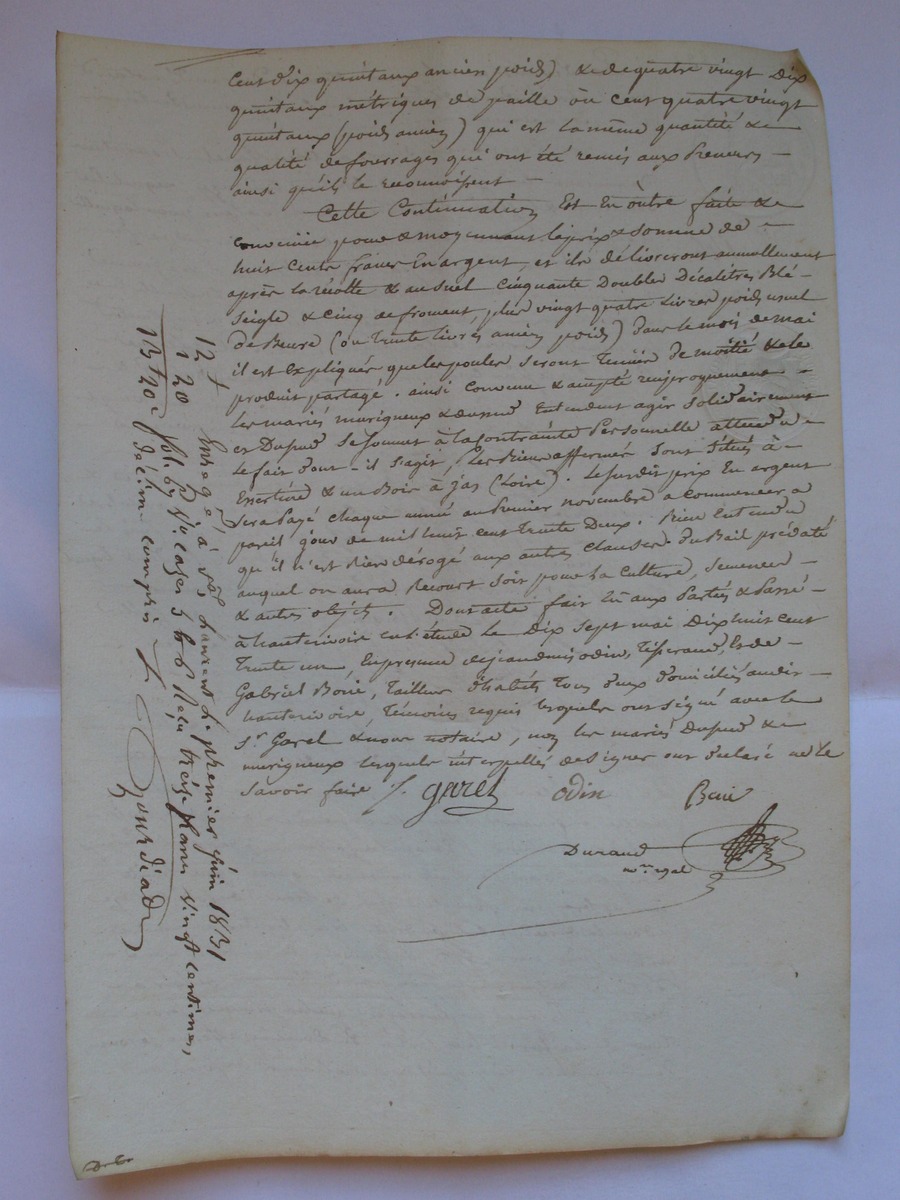 Cent dix quintaux ancien poids) & de quatre vingt Dix
quintaux métriques de paille ou cent quatre vingt
quintaux (poids ancien) qui est la même quantité &
qualité de fourrages qui ont été remis aux Preneurs
ainsi qu'ils le reconnoissent
Cette Continuation Est En outre faite &
convenue pour & moyennant le prix & somme de
huit Cents francs En argent, et ils délivreront annuellement
après la récolte & au suel Cinquante Doubles Décalitres Blé
seigle & Cinq de froment, plus vingt quatre Livres poids usuel
de Beurre (ou trente livres ancien poids) dans le mois de mai
il est Expliqué que les poules seront tenues de moitié & le
produit partagé. ainsi convenu & accepté réciproquement
Les mariés murigneux & Dupud Entendent agir solidairement
et Dupud se soumet à la Contrainte Personnelle attendu
le fait dont il s'agit, Les Biens affermés sont situés à
& un Bois à Jas (Loire). Le susdit prix En argent
sera Payé chaque année au Premier novembre a commencer a
pareil jour de mil huit cent trente Deux. Bien Entendu
qu'il n'est Rien dérogé aux autres clauses du Bail prédaté
auquel on aura Recours soit pour la Culture, semences
& autres objets. Dont acte fait lû aux Parties & Passé
à hauterivoire en l'étude Le Dix sept mai Dix huit cent
trente un En présence de jean denis odin, Tisserand, Et de
Gabriel Boué, Tailleur d'habits tous deux Domiciliés audit
hauterivoire, témoins requis lesquels ont signé avec le
Sr Garel & nous notaire, non les mariés Dupud &
murigneux lesquels interpellés de signer ont déclaré ne le
savoir faire
J. garel odin Boué
Durand
nre royal
12 "
1 20
13 f 20 c
Enregé à St Laurent le premier juin 1831
fol. 67 Vo cases 5 & 6 Reçu treize francs vingt centimes,
décime compris
Gourdiad